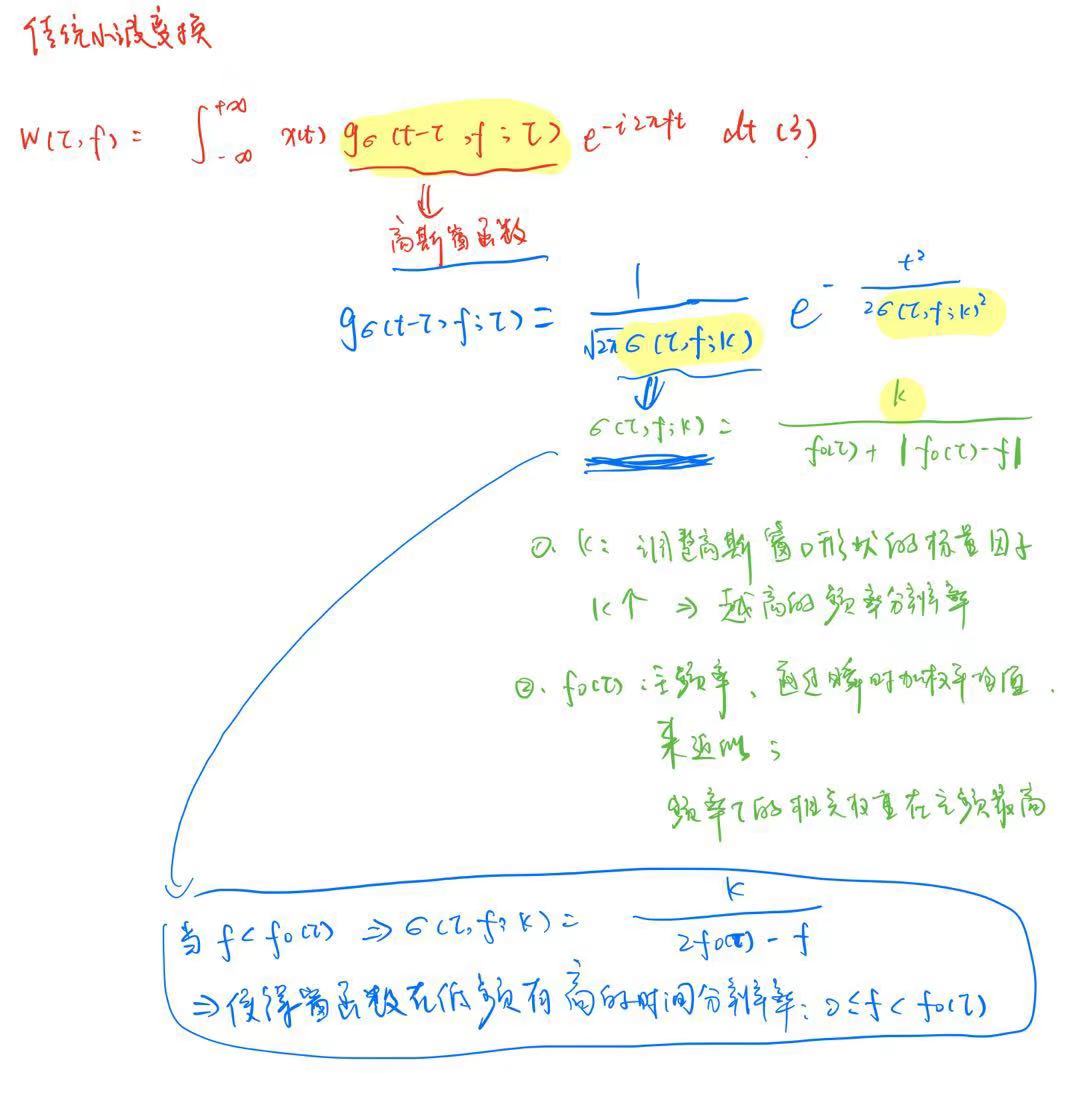 传统小波变换
W(τ,f) = ∫_{-∞}^{+∞} x(t) g_σ(t-τ,f;τ) e^{-i2πft} dt (3)
⇓
高斯窗函数
g_σ(t-τ,f;τ) = \frac{1}{\sqrt{2π} σ(τ,f;k)} e^{-\frac{t²}{2σ(τ,f;k)²}}
⇓
σ(τ,f;k) = \frac{k}{f₀(τ) + |f₀(τ)-f|}
①. k: 调整高斯窗口形状的标量因子
k↑ ⇒ 越高的频率分辨率
②. f₀(τ): 主频率、通过瞬时加权平均值.
来近似;
频率τ的相关权重在主频最高
当 f < f₀(τ) ⇒ σ(τ,f;k) = \frac{k}{2f₀(τ) - f}
⇒ 使得窗函数在低频有高的时间分辨率: 0 ≤ f < f₀(τ)